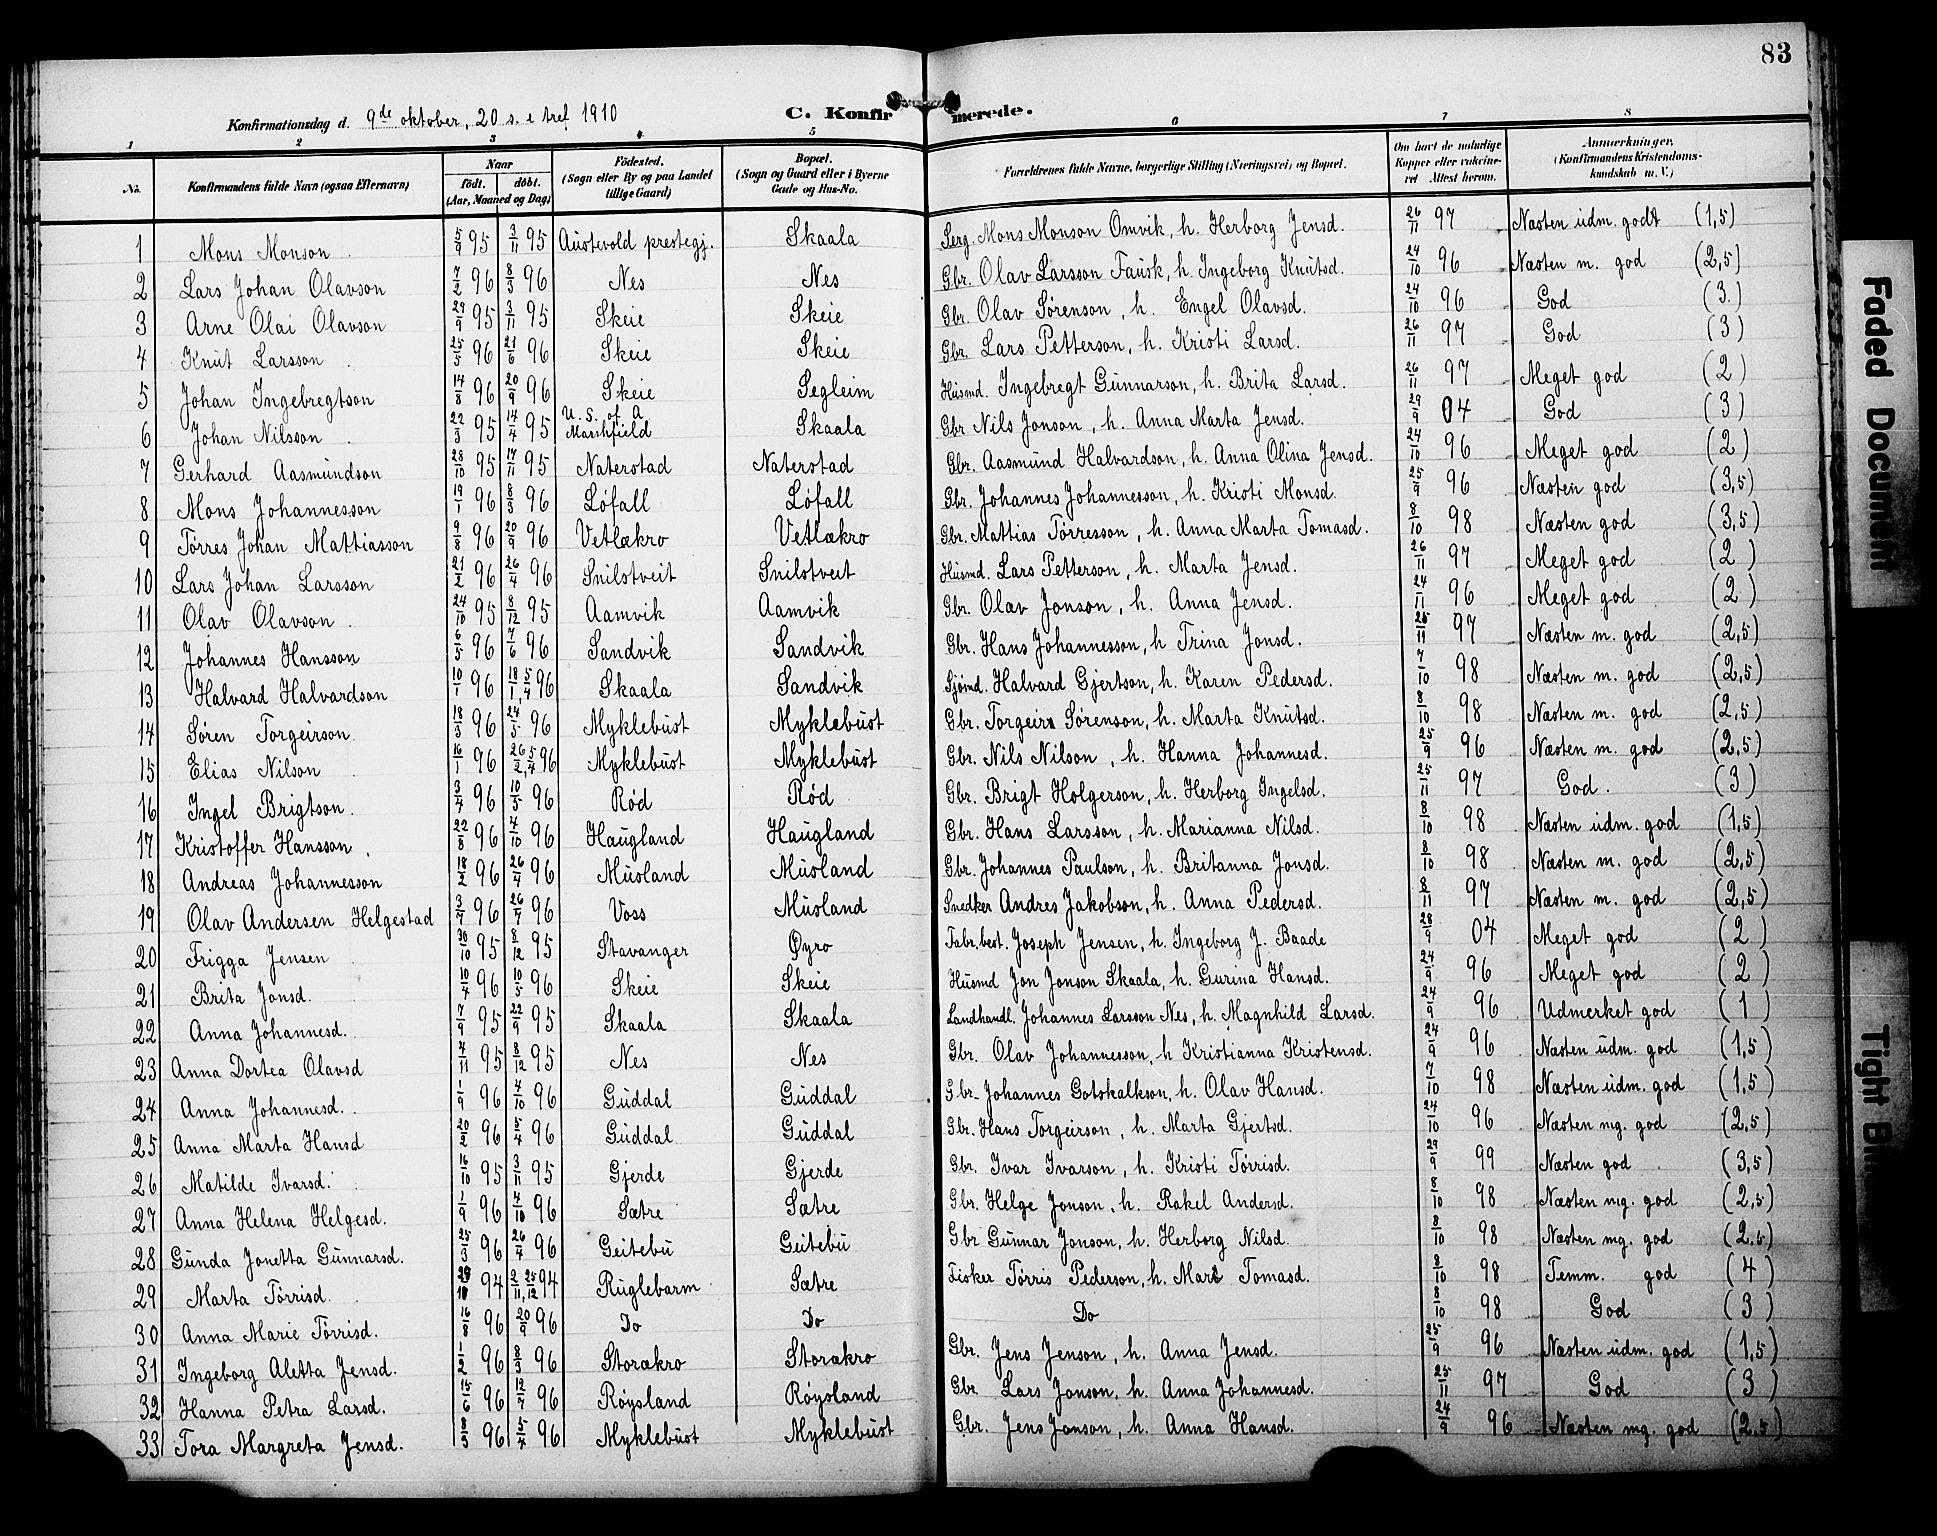 83
C. Konfirmerede.
Konfirmationsdag d. 9de oktober, 20 s. e tref 1910
1 2 3 4 5 6 7 8
No. | Konfirmandens fulde Navn (ogsaa Efternavn) | Naar født. døbt. (Aar, Maaned og Dag) | Fødested. (Sogn eller By og paa Landet tillige Gaard) | Bopæl. (Sogn og Gaard eller i Byerne Gade og Hus-No. | Forældrenes fulde Navne, borgerlige Stilling (Næringsvei) og Bopæl. | Om havt de naturlige Kopper eller vakcineret Attest herom. | Anmærkninger. (Konfirmandens Kristendomskundskab m. V.)
1 Mons Monson 5/9 95 3/11 95 Austevold prestegj. Skaala Serg. Mons Monson Omvik, h. Herborg Jensd. 26/11 97 Næsten udm. godt (1,5)
2 Lars Johan Olavson 7/2 96 8/3 96 Nes Nes Gbr. Olav Larsson Fausk, h. Ingeborg Knutsd. 24/10 96 Næsten m. god (2,5)
3 Arne Olai Olavson 29/9 95 3/11 95 Skeie Skeie Gbr. Olav Sørenson, h. Engel Olavsd. 24/10 96 God (3.)
4 Knut Larsson 25/5 96 21/6 96 Skeie Skeie Gbr. Lars Petterson, h. Kristi Larsd. 26/11 97 God (3)
5 Johan Ingebregtson 14/8 96 20/9 96 Skeie Segleim Husmd. Ingebregt Gunnarson, h. Brita Larsd. 26/11 97 Meget god (2)
6 Johan Nilsson 22/3 95 14/4 95 U. S. of A Marshfield Skaala Gbr Nils Jonson, h. Anna Marta Jensd. 29/9 04 God (3)
7 Gerhard Aasmundson 28/10 95 17/11 95 Naterstad Naterstad Gbr. Aasmund Halvardson, h. Anna Olina Jensd. 24/10 96 Meget god (2)
8 Mons Johannesson 19/1 96 8/3 96 Løfall Løfall Gbr. Johannes Johannesson, h. Kristi Monsd. 25/9 96 Næsten god (3,5)
9 Tørres Johan Mattiasson 9/8 96 20/9 96 Vetlækro Vetlækro Gbr. Mattias Tørresson, h. Anna Marta Tomasd. 8/10 98 Næsten god (3,5)
10 Lars Johan Larsson 21/2 96 26/4 96 Snilstveit Snilstveit Husmd. Lars Petterson, h. Marta Jensd. 26/11 97 Meget god (2)
11 Olav Olavson 24/10 95 8/12 95 Aamvik Aamvik Gbr. Olav Jonson, h. Anna Jensd. 24/11 96 Meget god (2)
12 Johannes Hansson 6/5 96 7/6 96 Sandvik Sandvik Gbr. Hans Johannesson, h Trina Jonsd. 25/11 97 Næsten m. god (2,5)
13 Halvard Halvardson 10/1 96 18/1, 5/4 96 Skaala Sandvik Sjømd. Halvard Gjertson, h. Karen Pedersd. 7/10 98 Næsten m. god (2,5)
14 Søren Torgeirson 18/3 96 24/5 96 Myklebust Myklebust Gbr. Torgeirs Sørenson, h. Marta Knutsd. 8/10 98 Næsten m. god (2,5)
15 Elias Nilson 16/1 96 26/2, 5/4 96 Myklebust Myklebust Gbr. Nils Nilson, h. Hanna Johannesd. 25/9 96 Næsten m. god (2,5)
16 Ingel Brigtson. 3/4 96 10/5 96 Rød Rød Gbr. Brigt Holgerson, h. Herborg Ingelsd. 25/11 97 God. (3)
17 Kristoffer Hansson 22/8 96 4/10 96 Haugland Haugland Gbr. Hans Larsson, h. Marianna Nilsd. 8/10 98 Næsten udm. god (1,5)
18 Andreas Johannesson 18/2 96 26/4 96 Musland Musland Gbr. Johannes Paulson, h. Britanna Jonsd. 8/10 98 Næsten m. god (2,5)
19 Olav Andersen Helgestad 3/7 96 26/7 96 Voss Musland Snedker Andres Jakobson, h. Anna Pedersd. 8/11 97 Næsten m. god (2,5)
20 Frigga Jensen 30/10 95 8/12 95 Stavanger Øyro Fabr.best. Joseph Jensen, h. Ingeborg J. Baade 28/9 04 Meget god (2)
21 Brita Jonsd. 10/4 96 10/5 96 Skeie Skeie Husmd Jon Jonson Skaala, h. Gurina Hansd. 24/9 96 Meget god (2)
22 Anna Johannesd. 7/9 95 22/9 95 Skaala Skaala Landhandl. Johannes Larsson Nes, h. Magnhild Larsd. 24/9 96 Udmerket god (1)
23 Anna Dortea Olavsd 4/11 95 8/12 95 Nes Nes Gbr. Olav Johannesson, h Kristianna Kristensd. 24/9 96 Næsten udm. god (1,5)
24 Anna Johannesd. 1/9 96 4/10 96 Guddal Guddal Gbr. Johannes Gotskalkson, h. Olav Hansd. 7/10 98 Næsten udm. god (1,5)
25 Anna Marta Hansd 20/2 96 5/4 96 Guddal Guddal Gbr. Hans Torgeirson, h. Marta Gjertsd. 24/10 96 Næsten mg. god (2,5)
26 Matilde Ivarsd. 16/10 95 3/11 95 Gjerde Gjerde Gbr. Ivar Ivarson, h. Kristi Tørrisd. 29/9 99 Næsten god (3,5)
27 Anna Helena Helgesd. 1/9 96 4/10 96 Sætre Sætre Gbr. Helge Jonson, h. Rakel Andersd. 8/10 98 Næsten mg. god (2,5)
28 Gunda Jonetta Gunnarsd. 25/3 96 26/4 96 Geitebu Geitebu Gbr Gunnar Jonson, h. Herborg Nilsd. 8/10 98 Næsten mg. god (2,5)
29 Marta Tørrisd. 29/10 94 2/11, 25/12 94 Ruglebarm Sætre Fisker Tørris Pederson, h. Mart Tomasd. 8/10 98 Temm. god (4)
30 Anna Marie Tørrisd. 16/8 96 20/9 96 Do Do Do 8/10 98 God (3)
31 Ingeborg Aletta Jensd. 1/2 96 8/3 96 Storækro Storækro Gbr. Jens Jenson, h. Anna Jensd. 25/9 96 Næsten udm. god (1,5)
32 Hanna Petra Larsd. 15/6 96 12/7 96 Røysland Røysland Gbr Lars Jonson, h. Anna Johannesd. 25/11 97 God (3)
33 Tora Margreta Jensd. 8/3 96 5/4 96 Myklebust Myklebust Gbr. Jens Jonson, h. Anna Hansd. 24/9 96 Næsten mg. god (2,5)
Faded Document
Tight